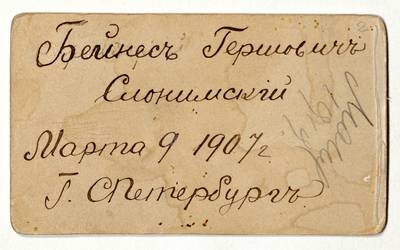 Бейнесъ Гершовичъ
Слонимскій
Марта 9 1907 г
Г. СПетербургъ